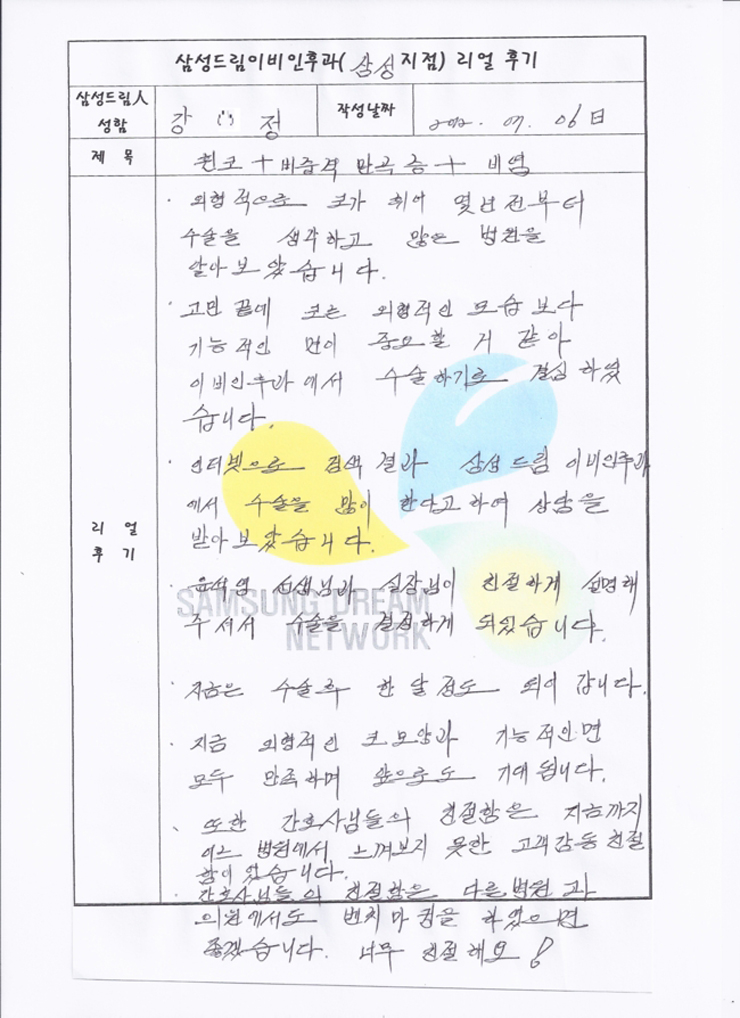 삼성드림이비인후과(삼성지점) 리얼 후기
삼성드림人 성함
강 정
작성날짜
07. 06日
제 목
휜코 + 비중격 만곡증 + 비염
리 얼
후 기
· 외형적으로 코가 휘어 몇년전부터
수술을 생각하고 많은 병원을
알아보았습니다.
· 고민 끝에 코는 외형적인 모습보다
기능적인 면이 중요할 거 같아
이비인후과에서 수술하기로 결심하였
습니다.
· 인터넷으로 검색 결과 삼성드림이비인후과
에서 수술을 많이 한다고하여 상담을
받아보았습니다.
· 윤석영 선생님과 실장님이 친절하게 설명해
주셔서 수술을 결정하게 되었습니다.
SAMSUNG DREAM
NETWORK
· 지금은 수술후 한달정도 되어 갑니다.
· 지금 외형적인 코모양과 기능적인면
모두 만족하며 앞으로도 기대됩니다.
· 또한 간호사님들의 친절함은 지금까지
어느 병원에서 느껴보지 못한 고객감동 친절
함이었습니다.
· 간호사님들의 친절함은 다른병원과
의원에서도 벤치마킹을 하였으면
좋겠습니다. 너무 친절해요!